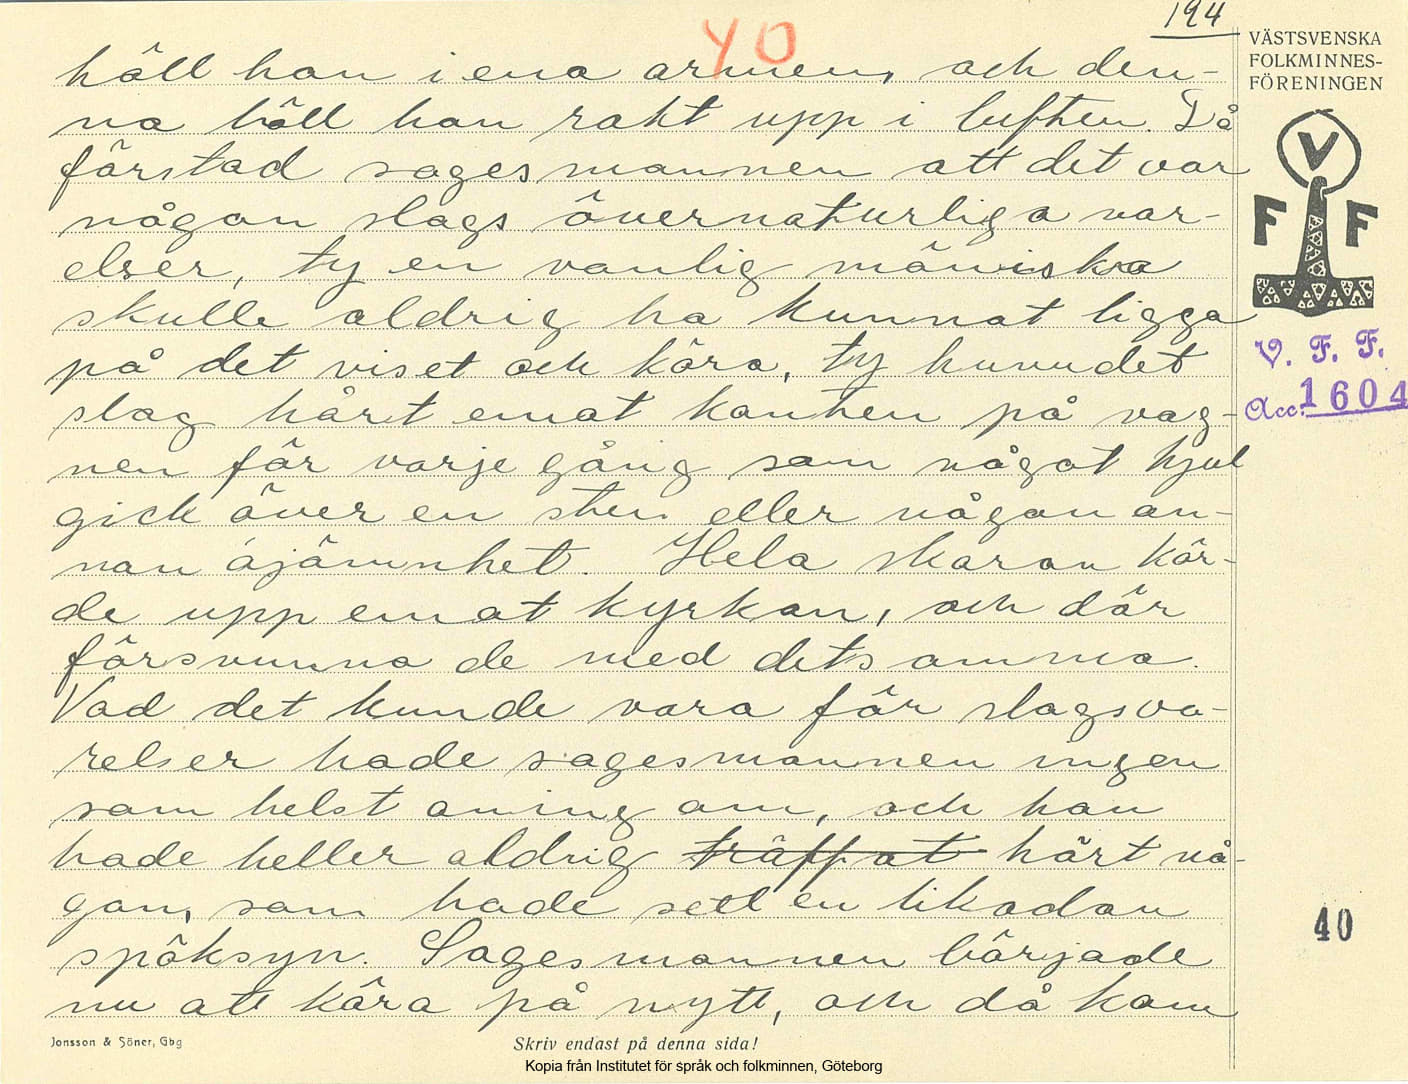 194
40
VÄSTSVENSKA
FOLKMINNES-
FÖRENINGEN
höll han i ena armen, och den-
na höll han rakt upp i luften. Då
förstod sagesmannen att det var
någon slags övernaturliga var-
elser, ty en vanlig mäniska
skulle aldrig ha kunnat ligga
på det viset och köra, ty huvudet
slog hårt emot kanten på vag-
nen för varje gång som något hjul
gick över en sten eller någon an-
nan ojämnhet. Hela skaran kör-
de upp emot kyrkan, och där
försvunno de med detsamma.
Vad det kunde vara för slags va-
relser hade sagesmannen ingen
som helst aning om, och han
hade heller aldrig träffat hört nå-
gon, som hade sett en likadan
spöksyn. Sagesmannen började
nu att köra på nytt, och då kom
V
F F
V. F. F.
Acc. 1604
40
Jonsson & Söner, Gbg
Skriv endast på denna sida!
Kopia från Institutet för språk och folkminnen, Göteborg